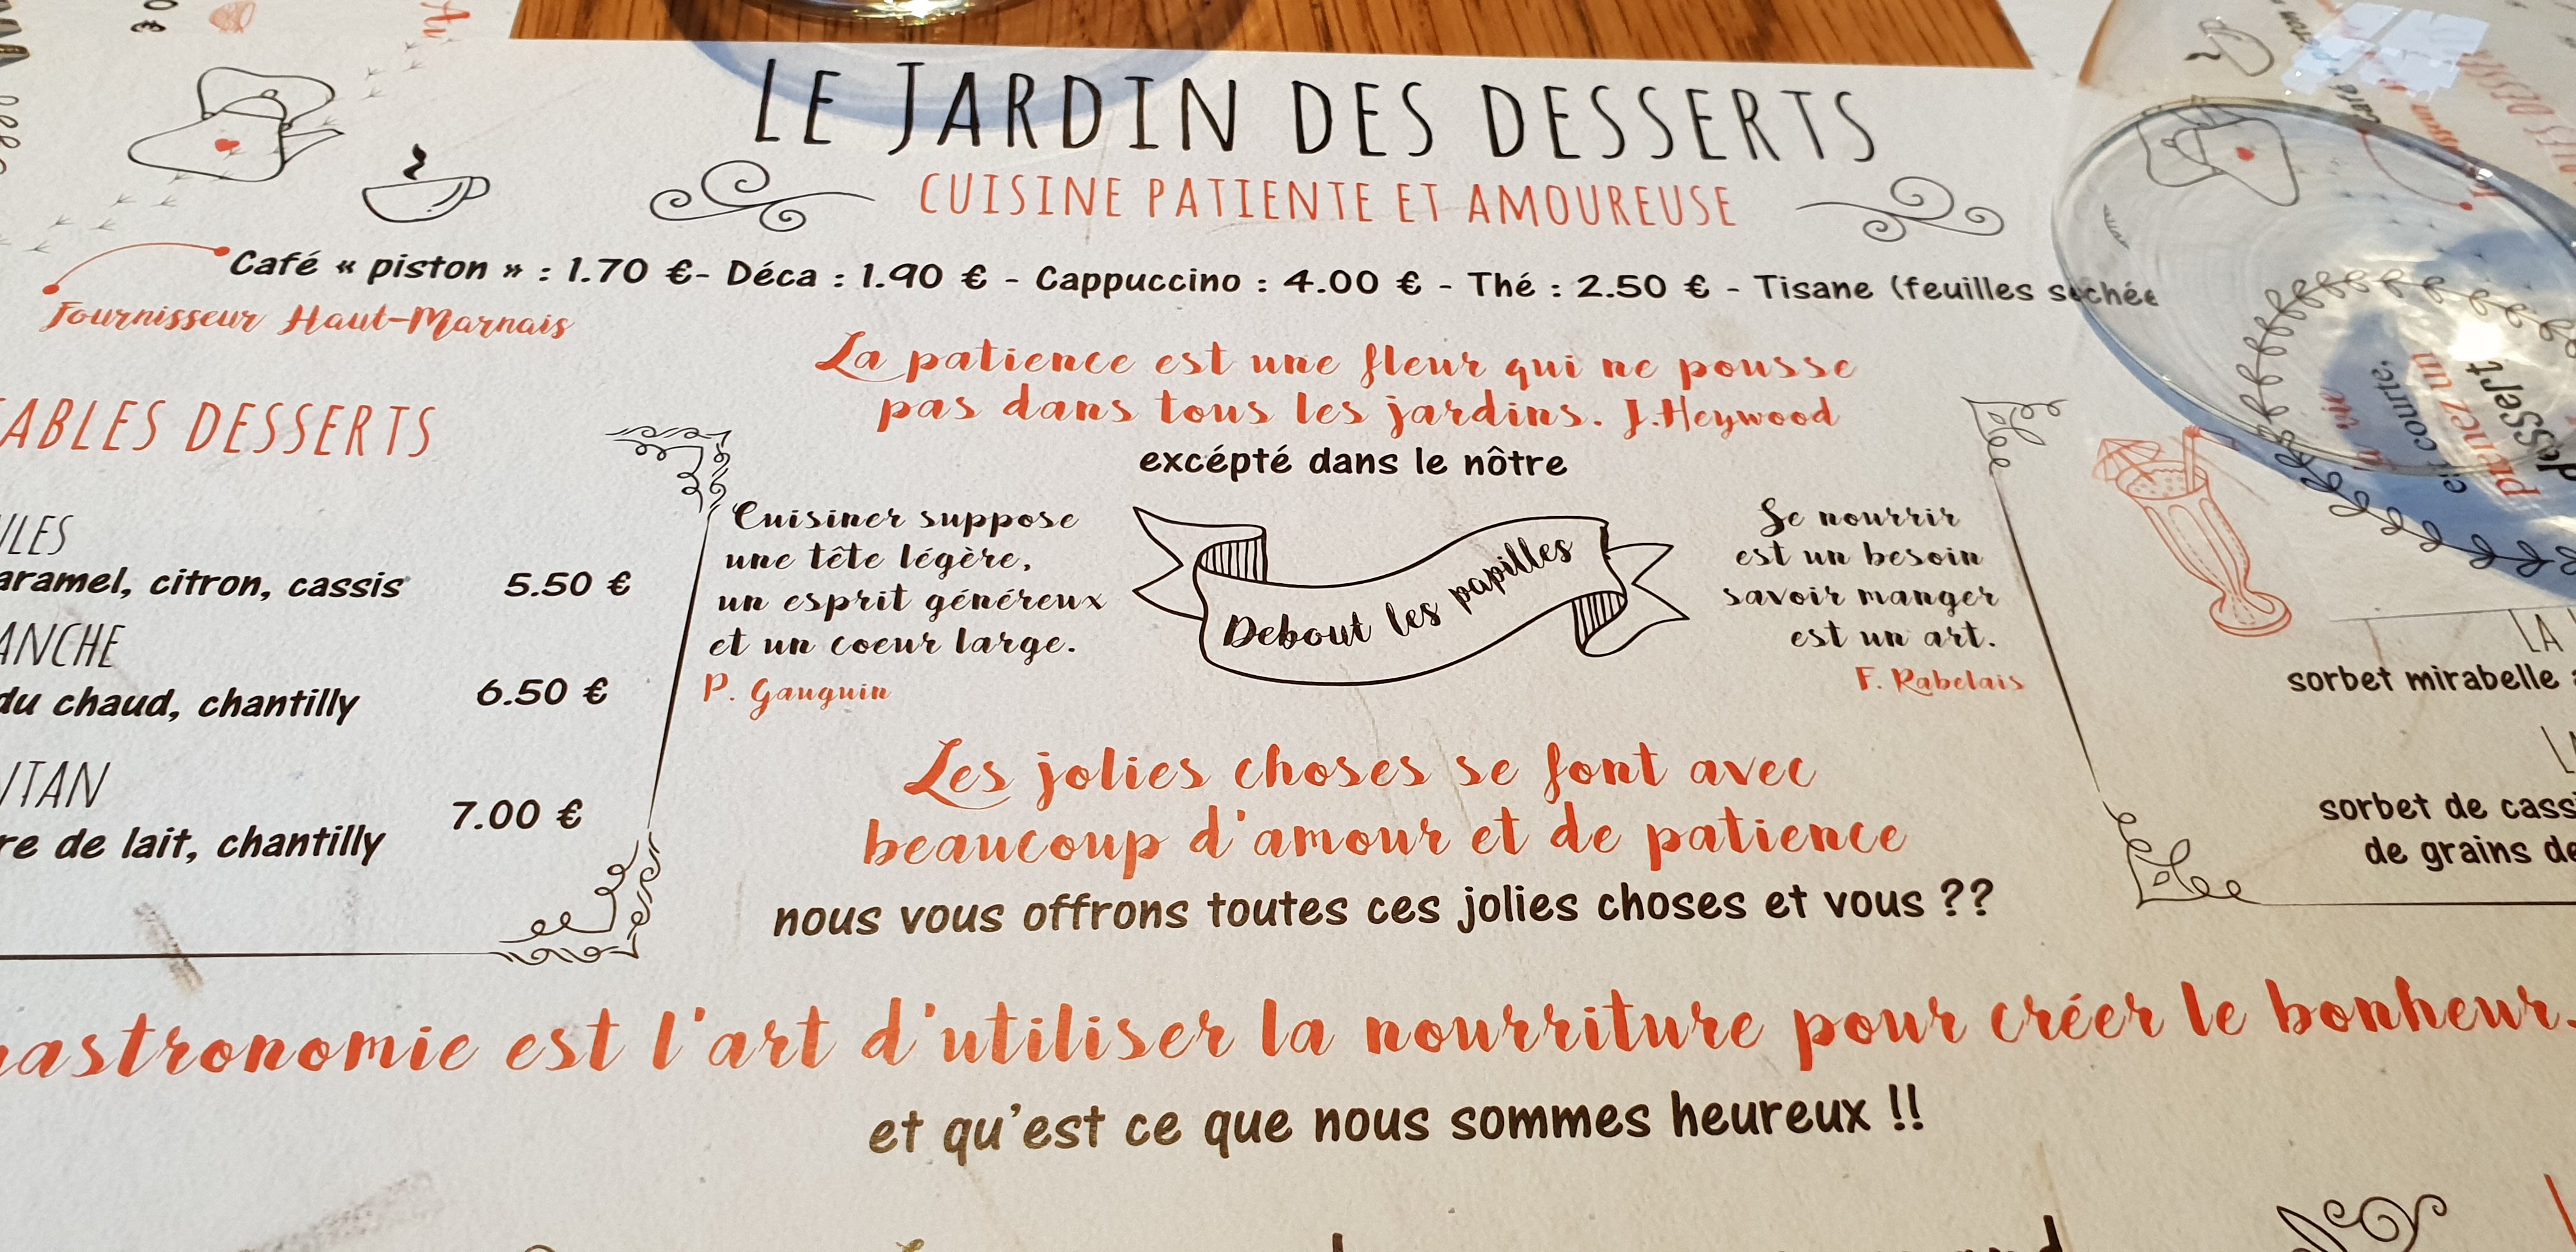 LE JARDIN DES DESSERTS
CUISINE PATIENTE ET AMOUREUSE
Café « piston » : 1.70 €- Déca : 1.90 € - Cappuccino : 4.00 € - Thé : 2.50 € - Tisane (feuilles séchée
Fournisseur Haut-Marnais
La patience est une fleur qui ne pousse
pas dans tous les jardins. J.Heywood
excépté dans le nôtre
ABLES DESSERTS
ULES
aramel, citron, cassis 5.50 €
ANCHE
du chaud, chantilly 6.50 €
ITAN
re de lait, chantilly 7.00 €
Cuisiner suppose
une tête légère,
un esprit généreux
et un coeur large.
P. Gauguin
Debout les papilles
Se nourrir
est un besoin
savoir manger
est un art.
F. Rabelais
La vie
est courte,
prenez un
dessert
LA
sorbet mirabelle
sorbet de cassi
de grains de
Les jolies choses se font avec
beaucoup d'amour et de patience
nous vous offrons toutes ces jolies choses et vous ??
gastronomie est l'art d'utiliser la nourriture pour créer le bonheur.
et qu'est ce que nous sommes heureux !!